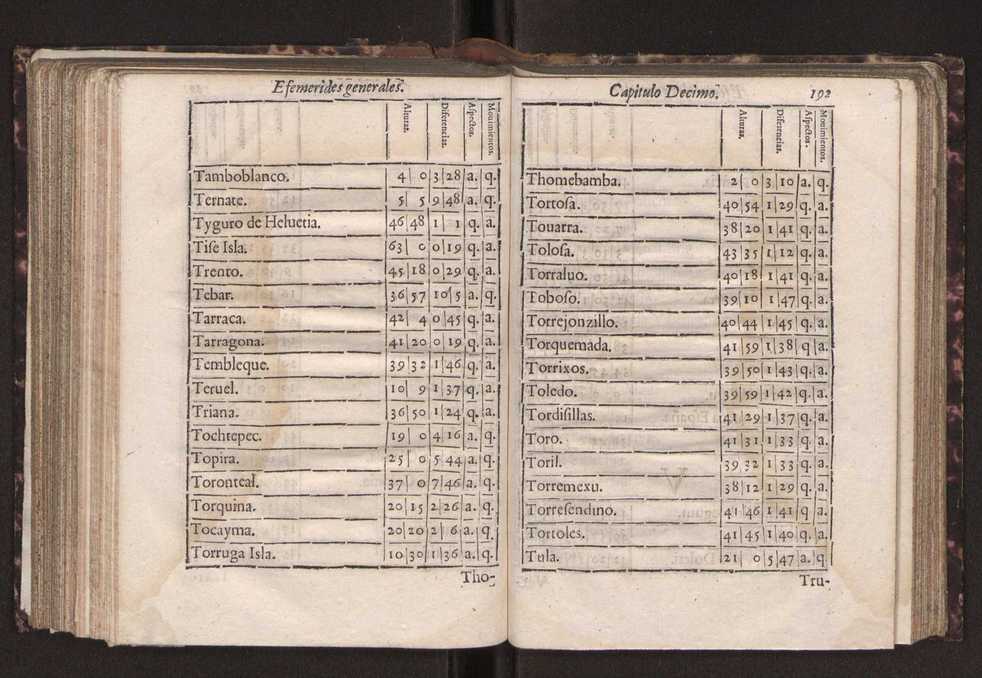 Efemerides generales.
Alturas. Diferencias. Aspectos. Mouimientos.
Tamboblanco. 4 0 3 28 a. q.
Ternate. 5 5 9 48 a. q.
Tyguro de Heluetia. 46 48 1 1 q. a.
Tiſe Isla. 63 0 0 19 q. a.
Trento. 45 18 0 29 q. a.
Tebar. 36 57 10 5 a. q.
Tarraca. 42 4 0 45 q. a.
Tarragona. 41 20 0 19 q. a.
Tembleque. 39 32 1 46 q. a.
Teruel. 10 9 1 37 q. a.
Triana. 36 50 1 24 q. a.
Tochtepec. 19 0 4 16 a. q.
Topira. 25 0 5 44 a. q.
Toronteal. 37 0 7 46 a. q.
Torquina. 20 15 2 26 a. q.
Tocayma. 20 20 2 6 a. q.
Torruga Isla. 10 30 1 36 a. q.
Tho-
Capitulo Decimo. 192
Alturas. Diferencias. Aspectos. Mouimientos.
Thomebamba. 2 0 3 10 a. q.
Tortoſa. 40 54 1 29 q. a.
Touarra. 38 20 1 41 q. a.
Toloſa. 43 35 1 12 q. a.
Torraluo. 40 18 1 41 q. a.
Toboſo. 39 10 1 47 q. a.
Torrejonzillo. 40 44 1 45 q. a.
Torquemada. 41 59 1 38 q a.
Torrixos. 39 50 1 43 q. a.
Toledo. 39 59 1 42 q. a.
Tordiſillas. 41 29 1 37 q. a.
Toro. 41 31 1 33 q. a.
Toril. 39 32 1 33 q. a.
Torremexu. 38 12 1 29 q. a.
Torreſendino. 41 46 1 41 q a.
Tortoles. 41 45 1 40 q. a.
Tula. 21 0 5 47 a. q
Tru-